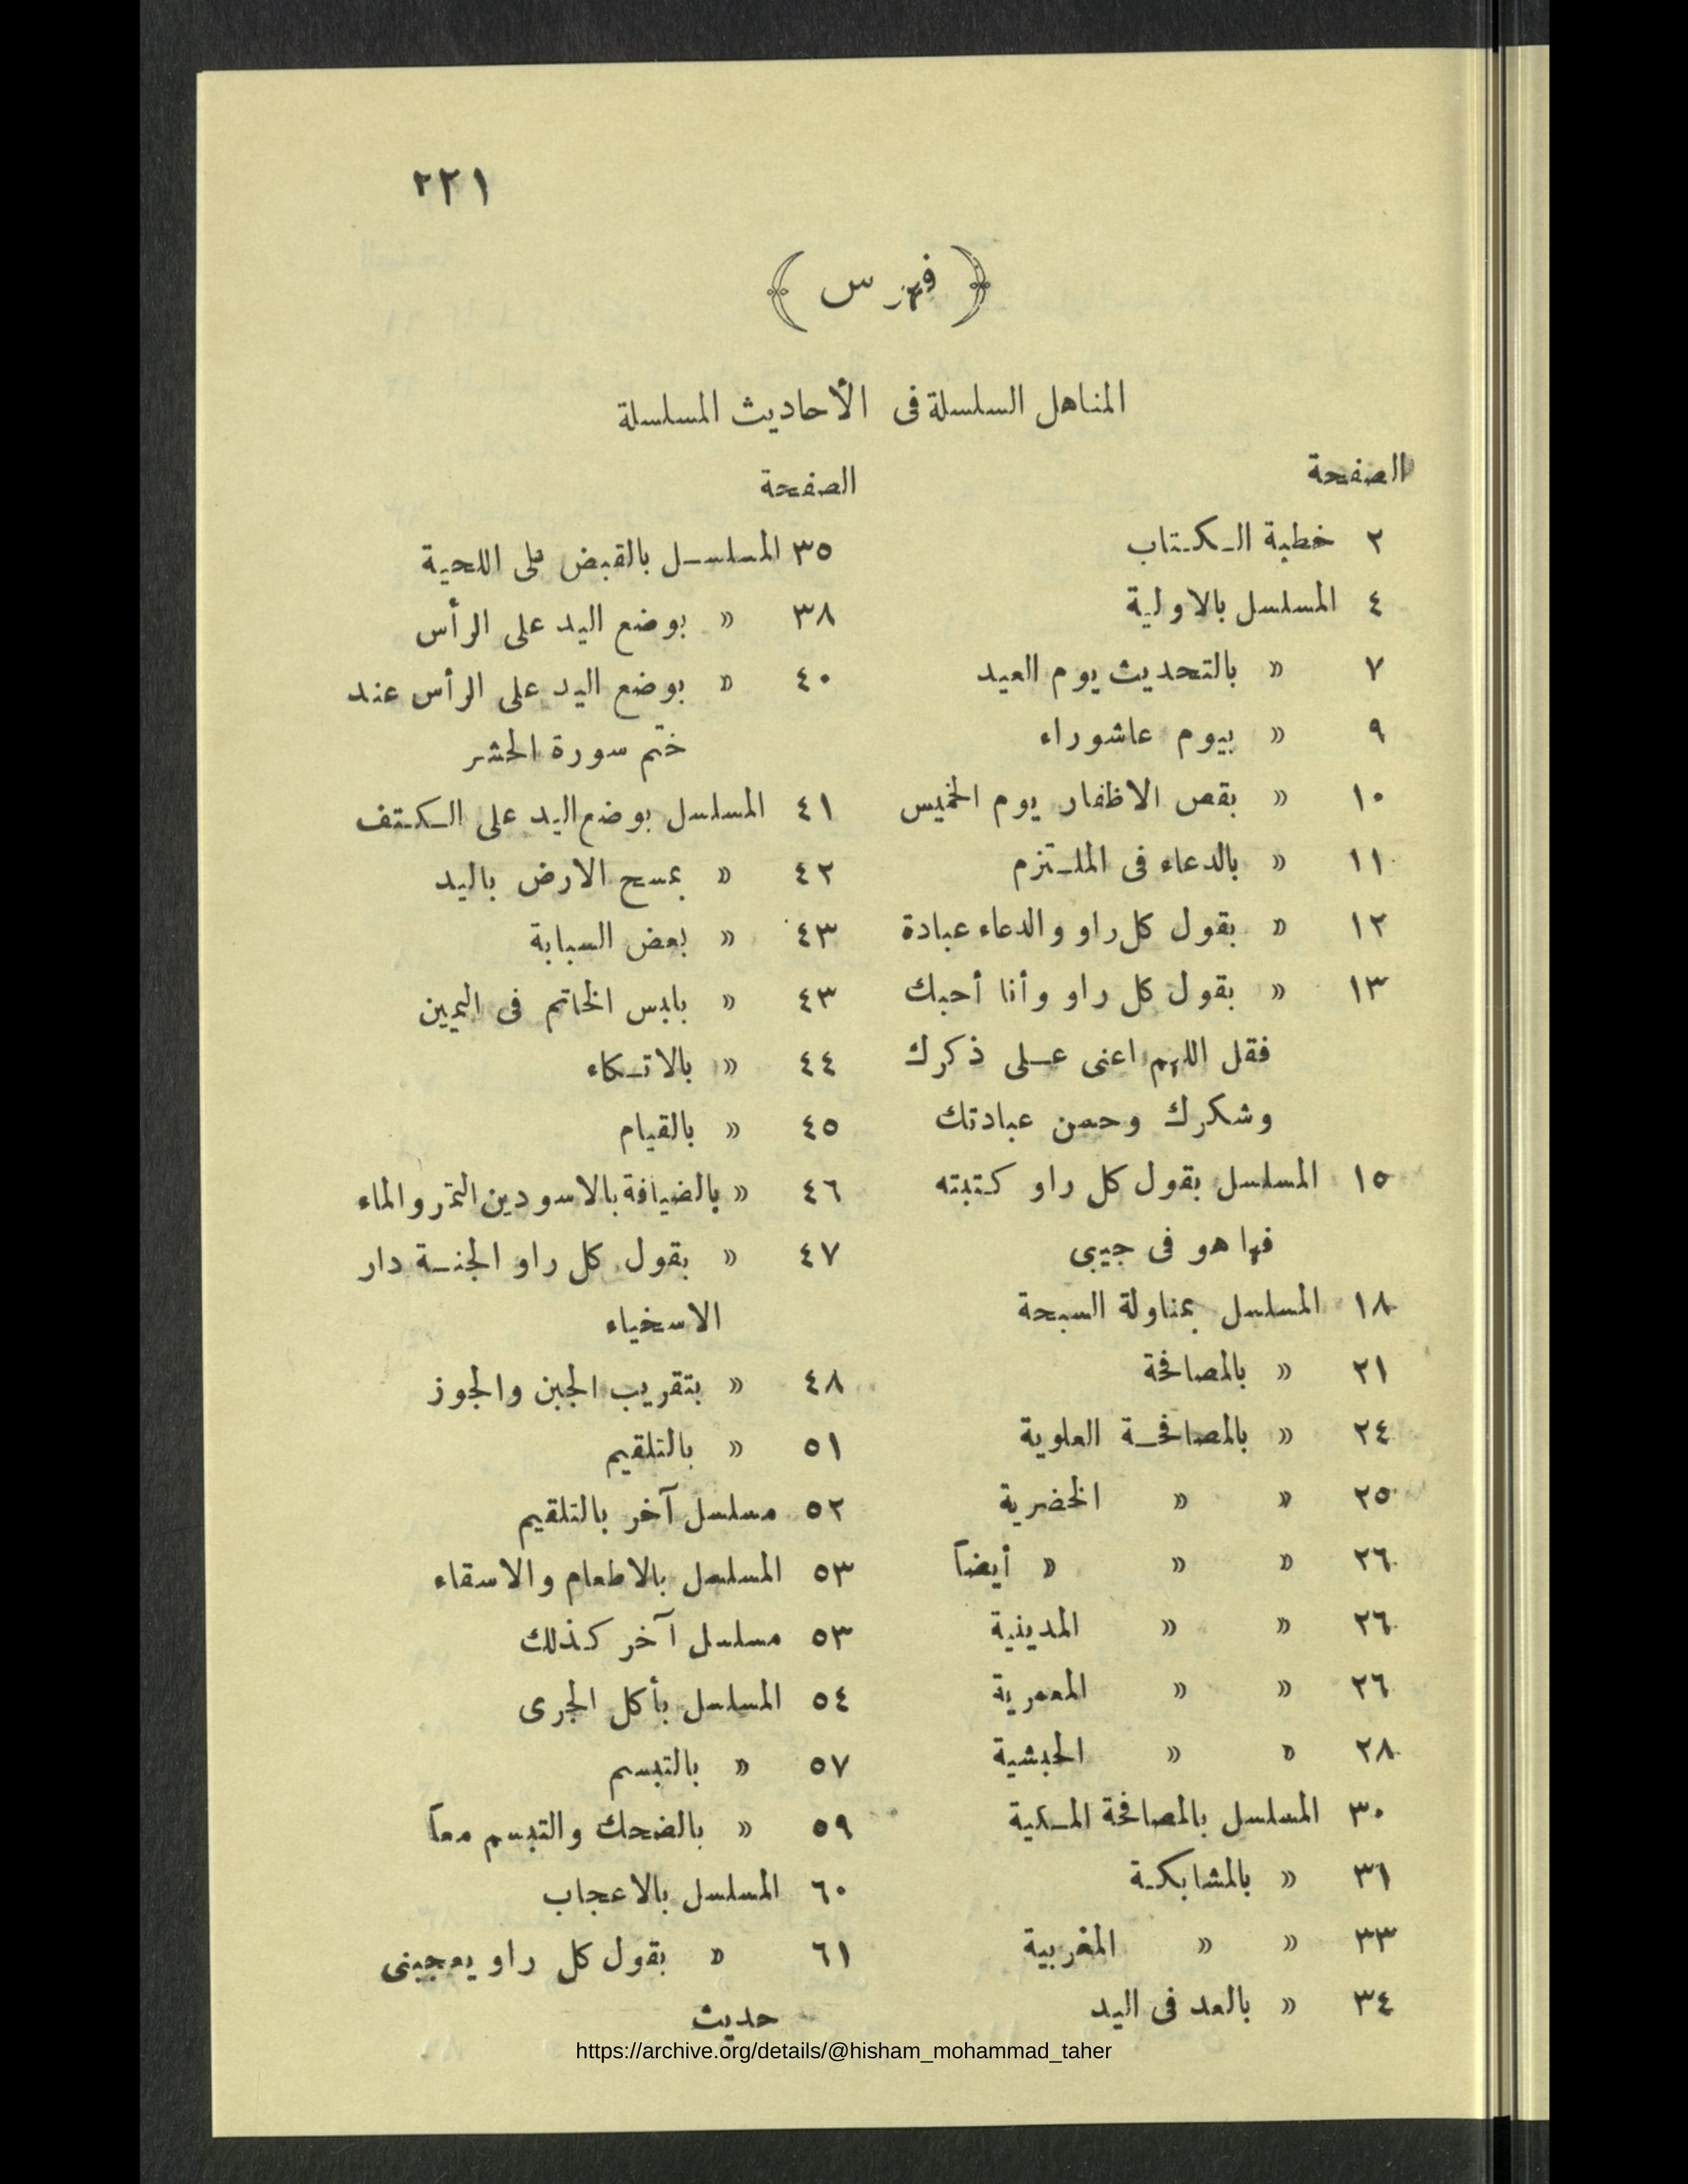 ٢٢١
﴿ فهرس ﴾
المناهل السلسلة فى الأحاديث المسلسلة
الصفحة
٢ خطبة الكتاب
٤ المسلسل بالاولية
٧ » بالتحديث يوم العيد
٩ » بيوم عاشوراء
١٠ » بقص الاظفار يوم الخميس
١١ » بالدعاء فى الملتزم
١٢ » بقول كل راو والدعاء عبادة
١٣ » بقول كل راو وأنا أحبك
فقل اللهم اعنى على ذكرك
وشكرك وحسن عبادتك
١٥ المسلسل بقول كل راو كتبته
فها هو فى جيبى
١٨ المسلسل بمناولة السبحة
٢١ » بالمصافحة
٢٤ » بالمصافحة العلوية
٢٥ » » الخضرية
٢٦ » » » أيضاً
٢٦ » » المدينية
٢٦ » » المعمرية
٢٨ » » الحبشية
٣٠ المسلسل بالمصافحة المكية
٣١ » بالمشابكة
٣٣ » » المغربية
٣٤ » بالعد فى اليد
الصفحة
٣٥ المسلسل بالقبض على اللحية
٣٨ » بوضع اليد على الرأس
٤٠ » بوضع اليد على الرأس عند
ختم سورة الحشر
٤١ المسلسل بوضع اليد على الكتف
٤٢ » بمسح الارض باليد
٤٣ » بعض السبابة
٤٣ » بلبس الخاتم فى اليمين
٤٤ » بالاتكاء
٤٥ » بالقيام
٤٦ » بالضيافة بالاسودين التمر والماء
٤٧ » بقول كل راو الجنة دار
الاسخياء
٤٨ » بتقريب الجبن والجوز
٥١ » بالتلقيم
٥٢ مسلسل آخر بالتلقيم
٥٣ المسلسل بالاطعام والاسقاء
٥٣ مسلسل آخر كذلك
٥٤ المسلسل بأكل الجرى
٥٧ » بالتبسم
٥٩ » بالضحك والتبسم معاً
٦٠ المسلسل بالاعجاب
٦١ » بقول كل راو يعجبنى
حديث
https://archive.org/details/@hisham_mohammad_taher